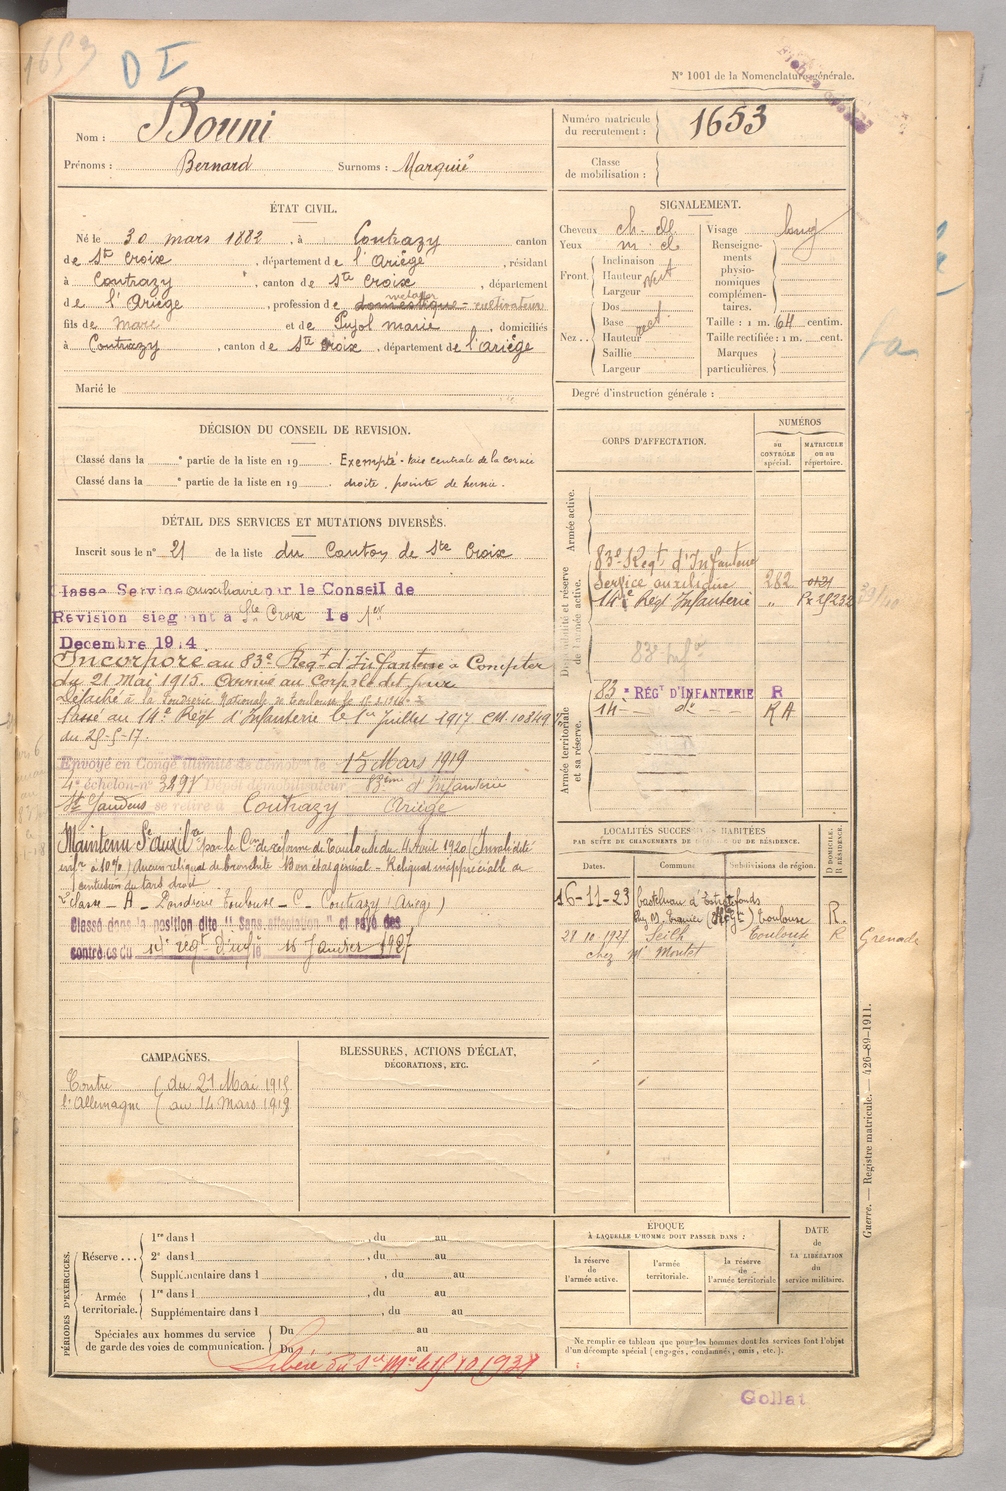 1653
D I
N° 1001 de la Nomenclature générale.
Nom : Bouni
Prénoms : Bernard Surnoms : Marquié
Numéro matricule du recrutement : 1653
Classe de mobilisation :
ÉTAT CIVIL.
Né le 30 mars 1882, à Contrazy canton
de Ste Croix, département de l'Ariège, résidant
à Contrazy, canton de Ste Croix, département
métayer
de l'Ariège, profession de domestique - cultivateur
fils de Marc et de Pujol marie, domiciliés
à Contrazy, canton de Ste Croix, département de l'ariège
Marié le
SIGNALEMENT.
Cheveux ch. Visage long
Yeux m. c.
Renseignements physionomiques complémentaires.
Front. Inclinaison
Hauteur
Largeur
Nez... Dos
Base
Hauteur
Saillie
Largeur
Taille : 1 m. 64 centim.
Taille rectifiée : 1 m. cent.
Marques particulières.
Degré d'instruction générale :
DÉCISION DU CONSEIL DE REVISION.
Classé dans la e partie de la liste en 19 . Exempté - taie centrale de la cornée
Classé dans la e partie de la liste en 19 . droite. pointe de hernie.
DÉTAIL DES SERVICES ET MUTATIONS DIVERSES.
Inscrit sous le n° 21 de la liste du Canton de Ste Croix
Classé Service auxiliaire par le Conseil de
Révision siégeant à Ste Croix le 1er
Decembre 1914.
Incorporé au 83e Régt d'Infanterie à Compter
du 21 Mai 1915. Arrivé au Corps ledit jour
Détaché à la Poudrerie Nationale de Toulouse le
Passé au 14e Régt d'Infanterie le 1er Juillet 1917 CM. 10849
du 25-5-17.
Envoyé en Congé illimité de démob. le 15 Mars 1919
4e échelon n° 3498 Dépôt démobilisateur 83ème d'Infanterie
St Gaudens se retire à Contrazy Ariège
Maintenu Sce auxilre par la Con de réforme de Toulouse du 4 Août 1920 (Invalidité
infre à 10%) Aucun reliquat de bronchite Bon état général - Reliquat inappréciable de
contusion du tarse droit
2e classe - A - Poudrerie Toulouse - C - Contrazy (Ariège)
Classé dans la position dite "Sans affectation" et rayé des
contrôles du 14e régt d'infie le 15 Janvier 1927
CORPS D'AFFECTATION.
NUMÉROS
AU CONTRÔLE spécial.
MATRICULE ou au répertoire.
Armée active.
Disponibilité et réserve de l'armée active.
83e Régt d'Infanterie
Service auxiliaire 282
14e Régt Infanterie " 
83e Infie
Armée territoriale et sa réserve.
83e RÉGT D'INFANTERIE R
14 - do - R A
LOCALITÉS SUCCESSIVES HABITÉES
PAR SUITE DE CHANGEMENTS DE DOMICILE OU DE RÉSIDENCE.
Dates. Commune Subdivisions de région. D DOMICILE. R RÉSIDENCE.
16-11-23 Castelnau d'Estretefonds
Toulouse R.
28 10 1927 Seilh Toulouse R
chez Mr Montet
Grenade
CAMPAGNES.
Contre (du 21 Mai 1915
l'Allemagne (au 14 Mars 1919
BLESSURES, ACTIONS D'ÉCLAT,
DÉCORATIONS, ETC.
PÉRIODES D'EXERCICES.
Réserve... 1re dans l , du au
2e dans l , du au
Supplémentaire dans l , du au
Armée territoriale. 1re dans l , du au
Supplémentaire dans l , du au
Spéciales aux hommes du service de garde des voies de communication. Du au
Du au
Libéré du Sce Mre le 15 10 1931
ÉPOQUE
À LAQUELLE L'HOMME DOIT PASSER DANS :
la réserve de l'armée active.
l'armée territoriale.
la réserve de l'armée territoriale
DATE de LA LIBÉRATION du service militaire.
Ne remplir ce tableau que pour les hommes dont les services font l'objet
d'un décompte spécial (engagés, condamnés, omis, etc.).
Guerre. — Registre matricule. — 426-89-1911.
Collat